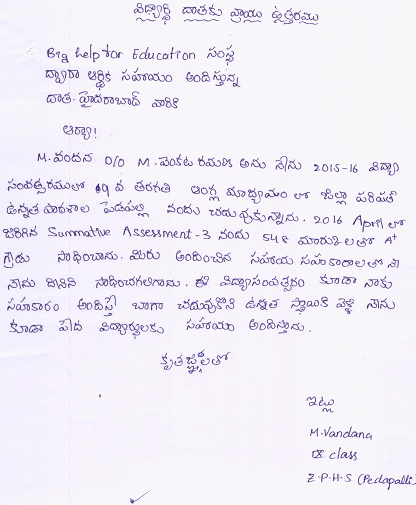 విద్యార్థి దాతకు వ్రాయు ఉత్తరము
Big help for Education సంస్థ
ద్వారా ఆర్థిక సహాయం అందిస్తున్న
దాత. హైదరాబాద్ వారికి
ఆర్యా!
M. వందన D/O M. వెంకట రమణ అను నేను 2015-16 విద్యా
సంవత్సరములో 9 వ తరగతి ఆంగ్ల మాధ్యమం లో జిల్లా పరిషత్
ఉన్నత పాఠశాల పెదపల్లి నందు చదువుకున్నాను. 2016 April లో
జరిగిన Summative Assessment-3 నందు 548 మార్కులతో A+
గ్రేడు సాధించాను. మీరు అందించిన సహాయ సహకారాలతో నే
నాను దీనిని సాధించగలిగాను. ఈ విద్యాసంవత్సరం కూడా నాకు
సహకారం అందిస్తే బాగా చదువుకొని ఉన్నత స్థాయికి వెళ్లి నాను
కూడా పేద విద్యార్థులకు సహాయం అందిస్తాను.
కృతజ్ఞతలతో
ఇట్లు
M. Vandana
IX class
Z.P.H.S (Pedapalli)